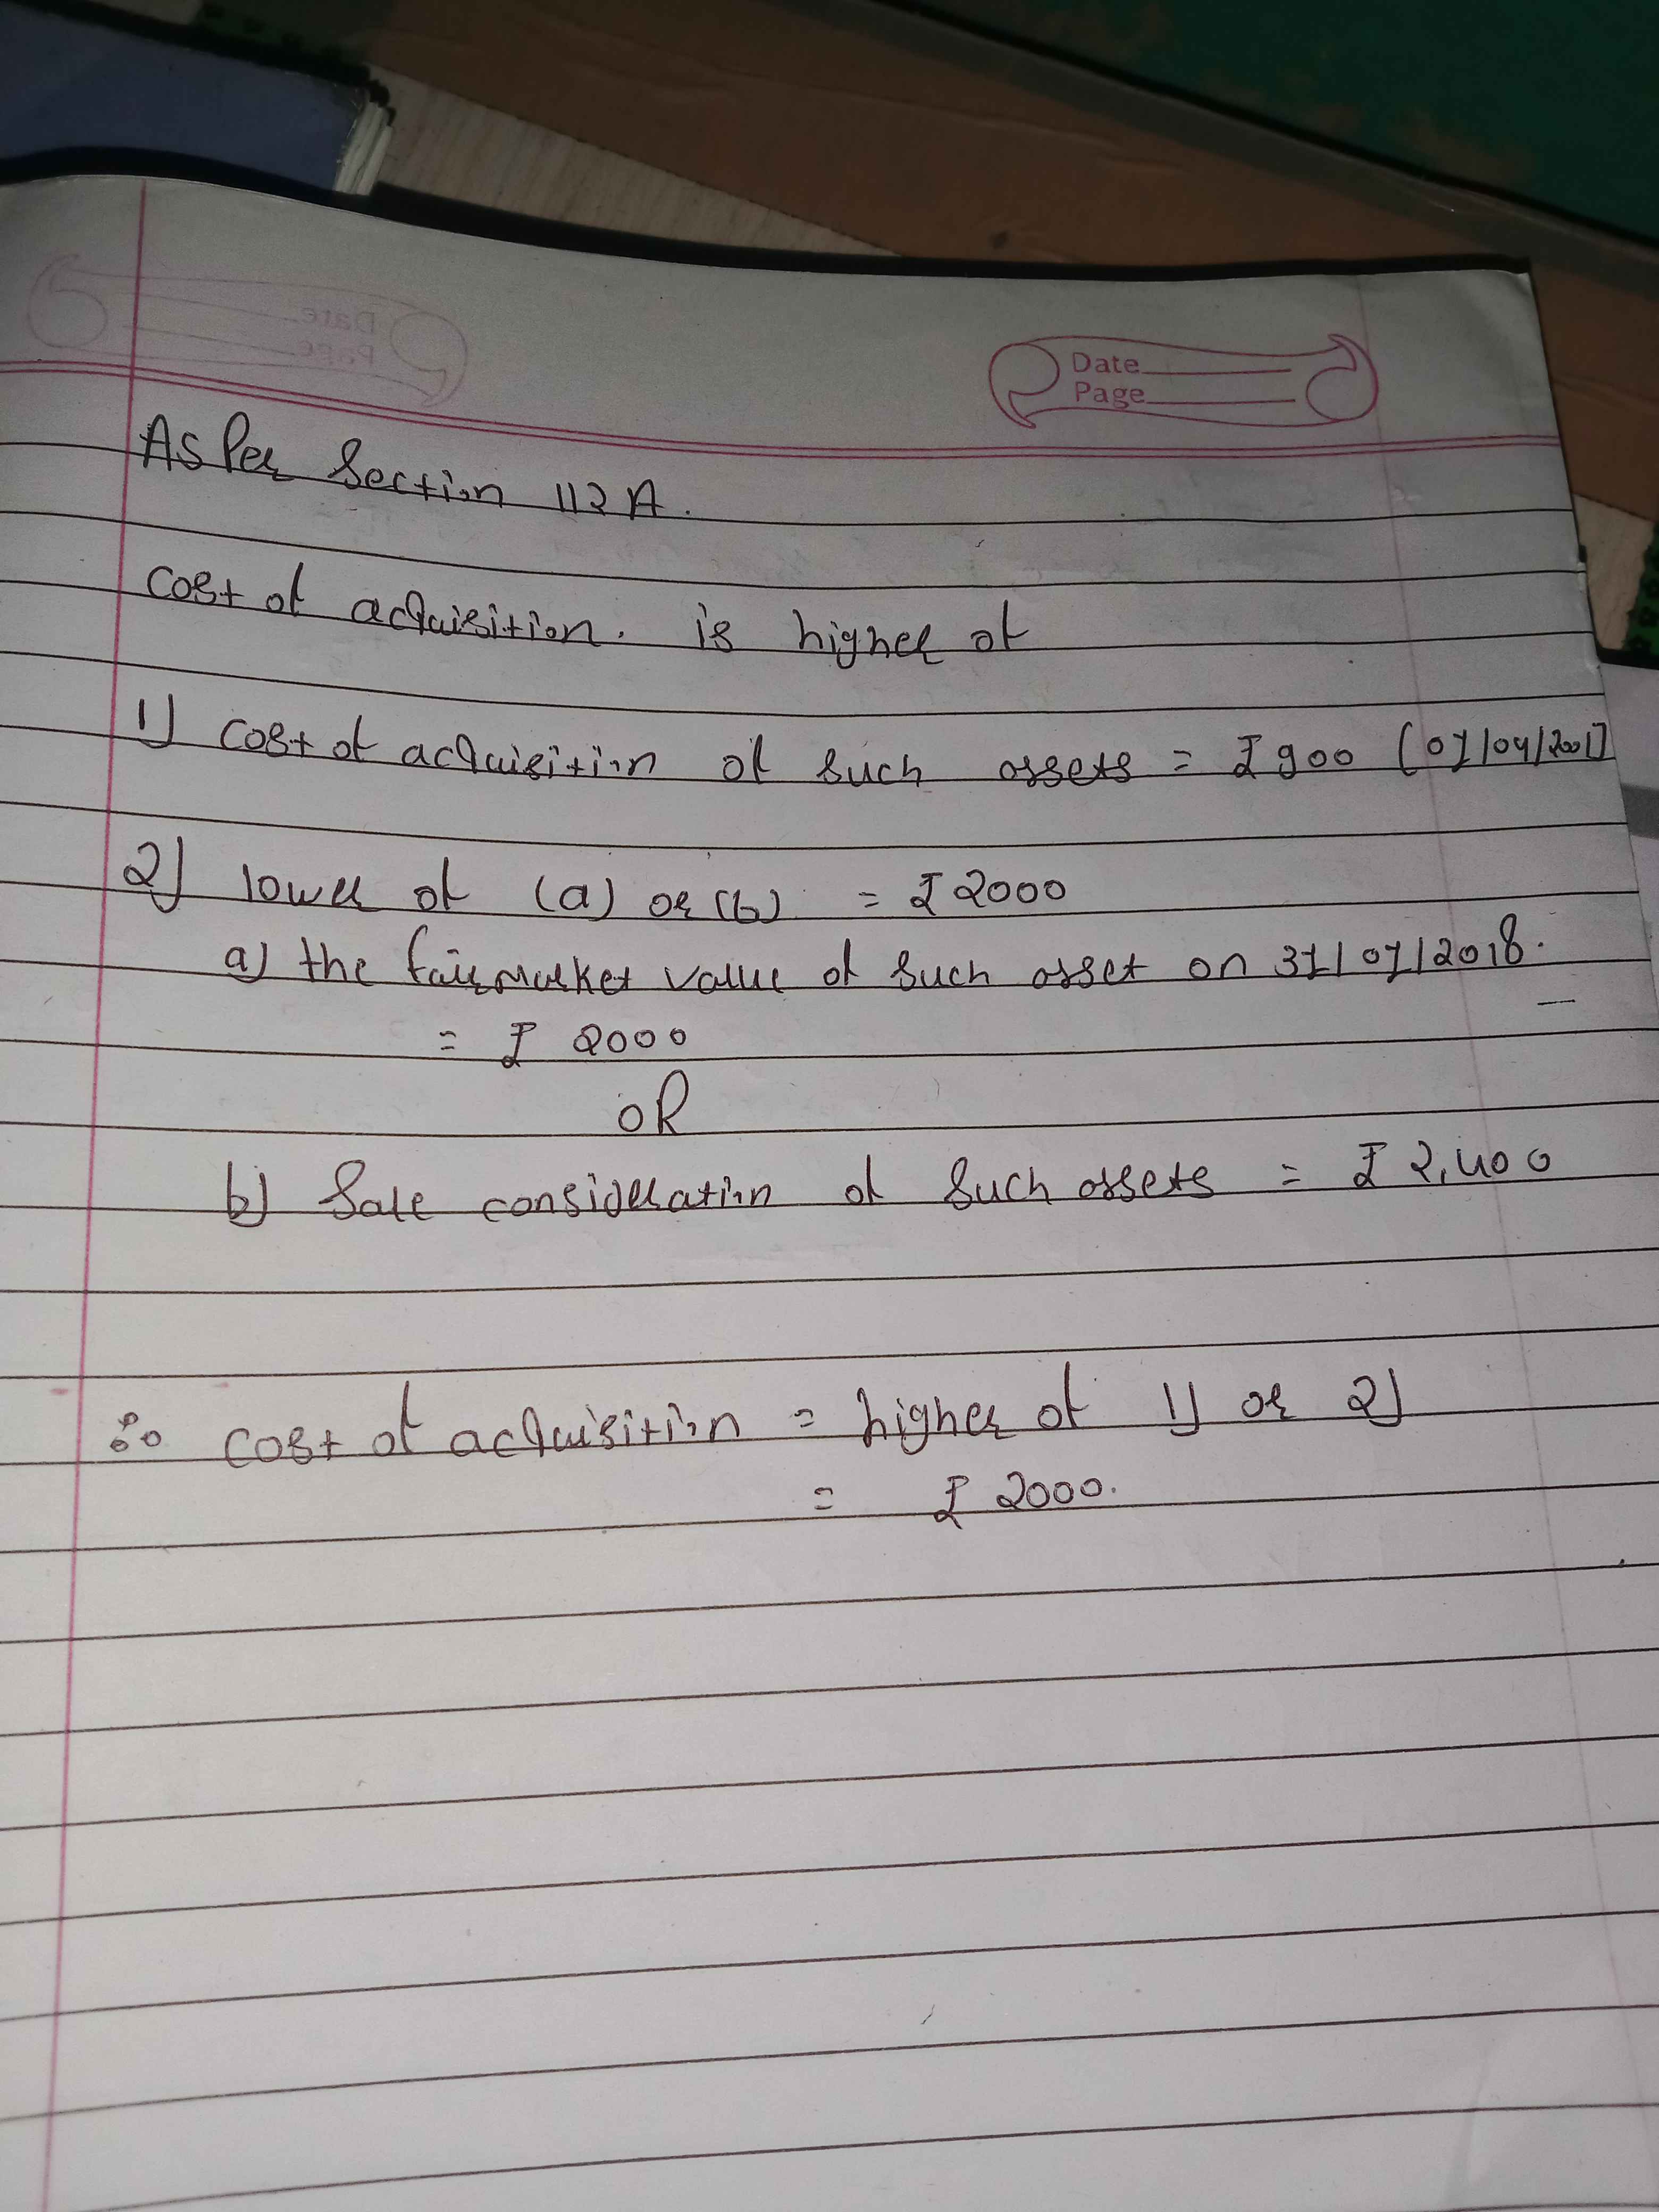 Date
Page
As Per Section 112A.
Cost of acquisition. is higher of
1) Cost of acquisition of such assets = ₹900 [01/04/2001]
2) lower of (a) or (b) = ₹2000
a) the fair market value of such asset on 31/01/2018.
= ₹ 2000
OR
b) Sale consideration of such assets = ₹ 2,400
∴ Cost of acquisition = higher of 1) or 2)
= ₹ 2000.